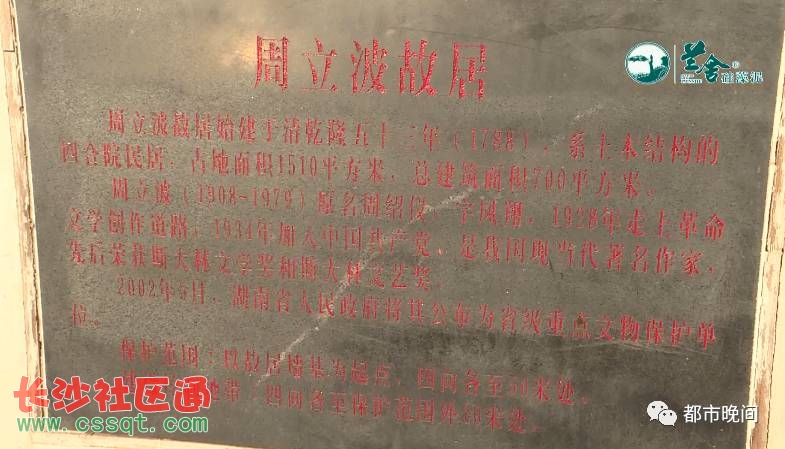 周立波故居
周立波故居始建于清乾隆五十三年（1788），系土木结构的
四合院民居，占地面积1510平方米，总建筑面积700平方米。
周立波（1908-1979）原名周绍仪，字凤翔，1928年走上革命
文学创作道路，1934年加入中国共产党，是我国现当代著名作家，
先后荣获斯大林文学奖和斯大林文艺奖。
2002年5月，湖南省人民政府将其公布为省级重点文物保护单
位。
保护范围：以故居墙基为起点，四向各至50米处。
地带：四向各至保护范围外80米处。
兰舍
硅藻泥
长沙社区通
www.cssqt.com
都市晚间